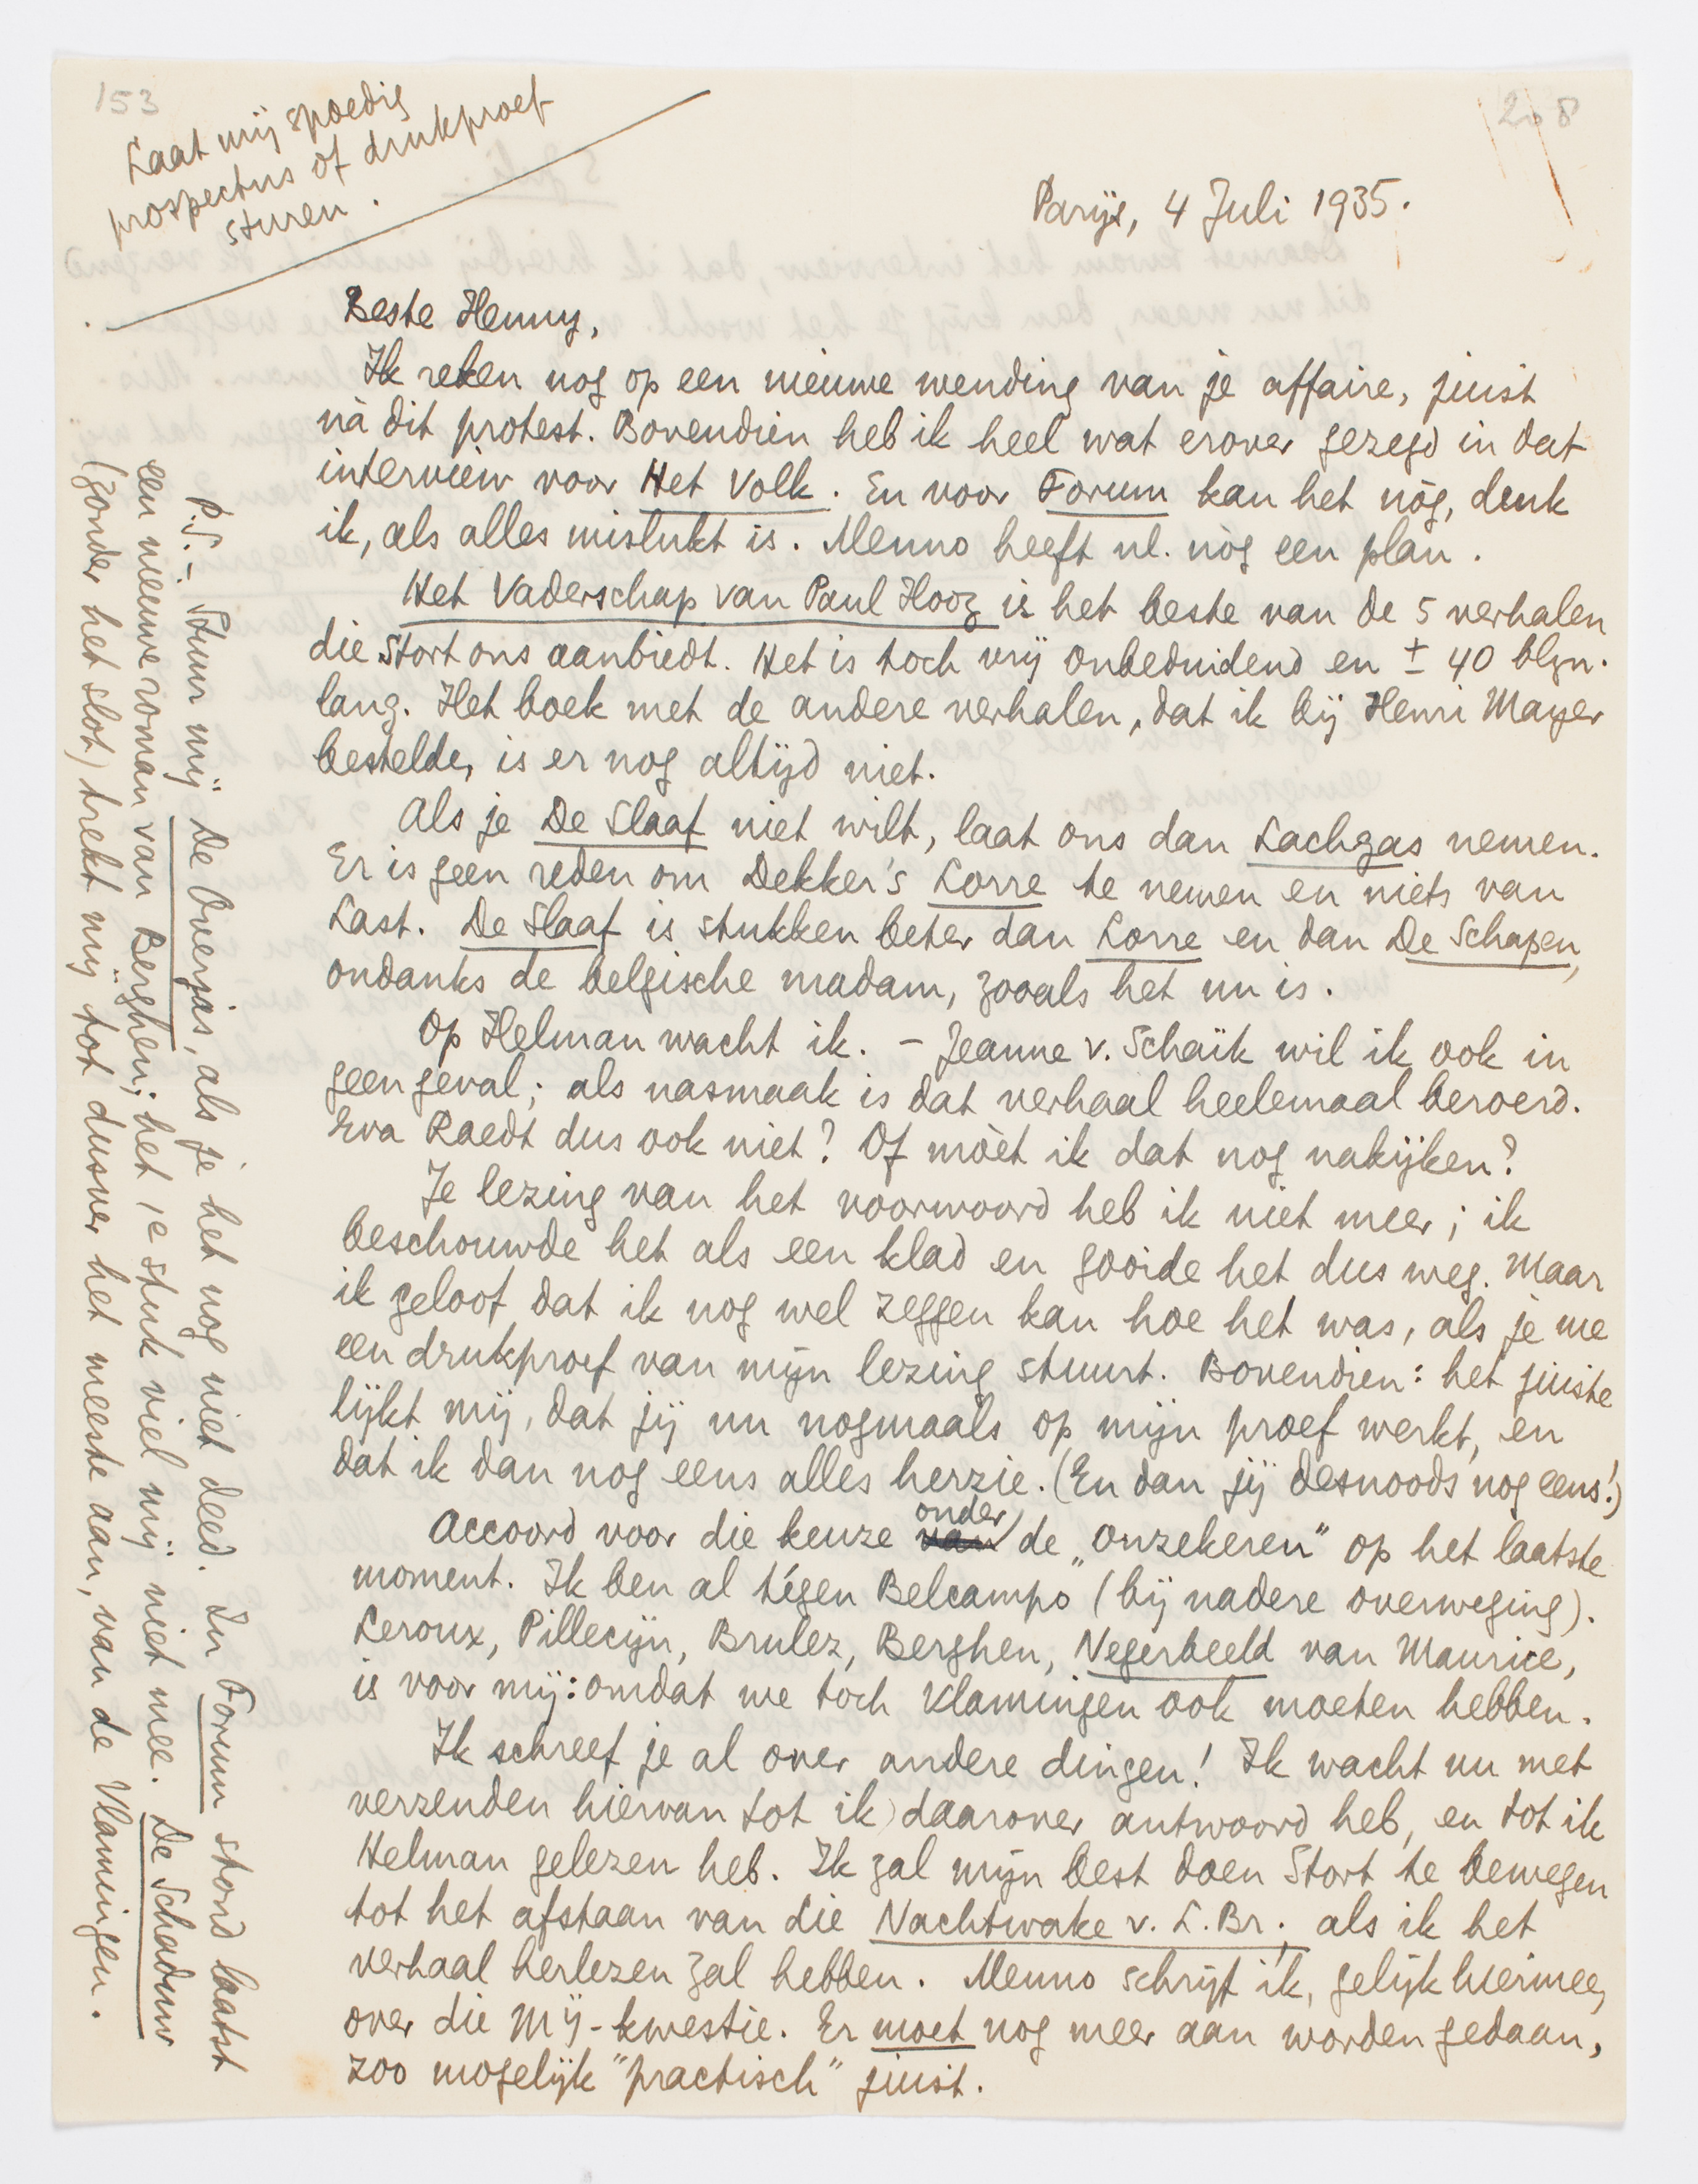 153
208
Laat mij spoedig
prospectus of drukproef
sturen.
Parijs, 4 Juli 1935.
Beste Henny,
Ik reken nog op een nieuwe wending van je affaire, juist
nà dit protest. Bovendien heb ik heel wat erover gezegd in dat
interview voor Het Volk. En voor Forum kan het nòg, denk
ik, als alles mislukt is. Menno heeft nl. nòg een plan.
Het Vaderschap van Paul Hooz is het beste van de 5 verhalen
die Stort ons aanbiedt. Het is toch vrij onbeduidend en ± 40 blzn.
lang. Het boek met de andere verhalen, dat ik bij Henri Mayer
bestelde, is er nog altijd niet.
Als je De Slaaf niet wilt, laat ons dan Lachgas nemen.
Er is geen reden om Dekker's Lorre te nemen en niets van
Last. De Slaaf is stukken beter dan Lorre en dan De Schapen,
ondanks de belgische madam, zooals het nu is.
Op Helman wacht ik. – Jeanne v. Schaik wil ik ook in
geen geval; als nasmaak is dat verhaal heelemaal beroerd.
Eva Raedt dus ook niet? Of mòèt ik dat nog nakijken?
Je lezing van het voorwoord heb ik niet meer; ik
beschouwde het als een klad en gooide het dus weg. Maar
ik geloof dat ik nog wel zeggen kan hoe het was, als je me
een drukproef van mijn lezing stuurt. Bovendien: het juiste
lijkt mij, dat jij nu nogmaals op mijn proef werkt, en
dat ik dan nog eens alles herzie. (En dan jij desnoods nog eens!)
onder
Accoord voor die keuze van de „onzekeren" op het laatste
moment. Ik ben al tégen Belcampo (bij nadere overweging).
Leroux, Pillecijn, Brulez, Berghen, Negerbeeld van Maurice,
is voor mij: omdat we toch Vlamingen ook moeten hebben.
Ik schreef je al over andere dingen! Ik wacht nu met
verzenden hiervan tot ik daarover antwoord heb, en tot ik
Helman gelezen heb. Ik zal mijn best doen Stort te bewegen
tot het afstaan van die Nachtwake v. L. Br., als ik het
verhaal herlezen zal hebben. Menno schrijf ik, gelijk hiermee,
over die Mij-kwestie. Er moet nog meer aan worden gedaan,
zoo mogelijk "practisch" juist.
P.S. – Stuur mij De Overjas, als je het nog niet deed. In Forum stond laatst
een nieuwe roman van Berghen; het 1e stuk viel mij niet mee. De Schaduw
(zonder het slot) trekt mij tot dusver het meeste aan, van de Vlamingen.